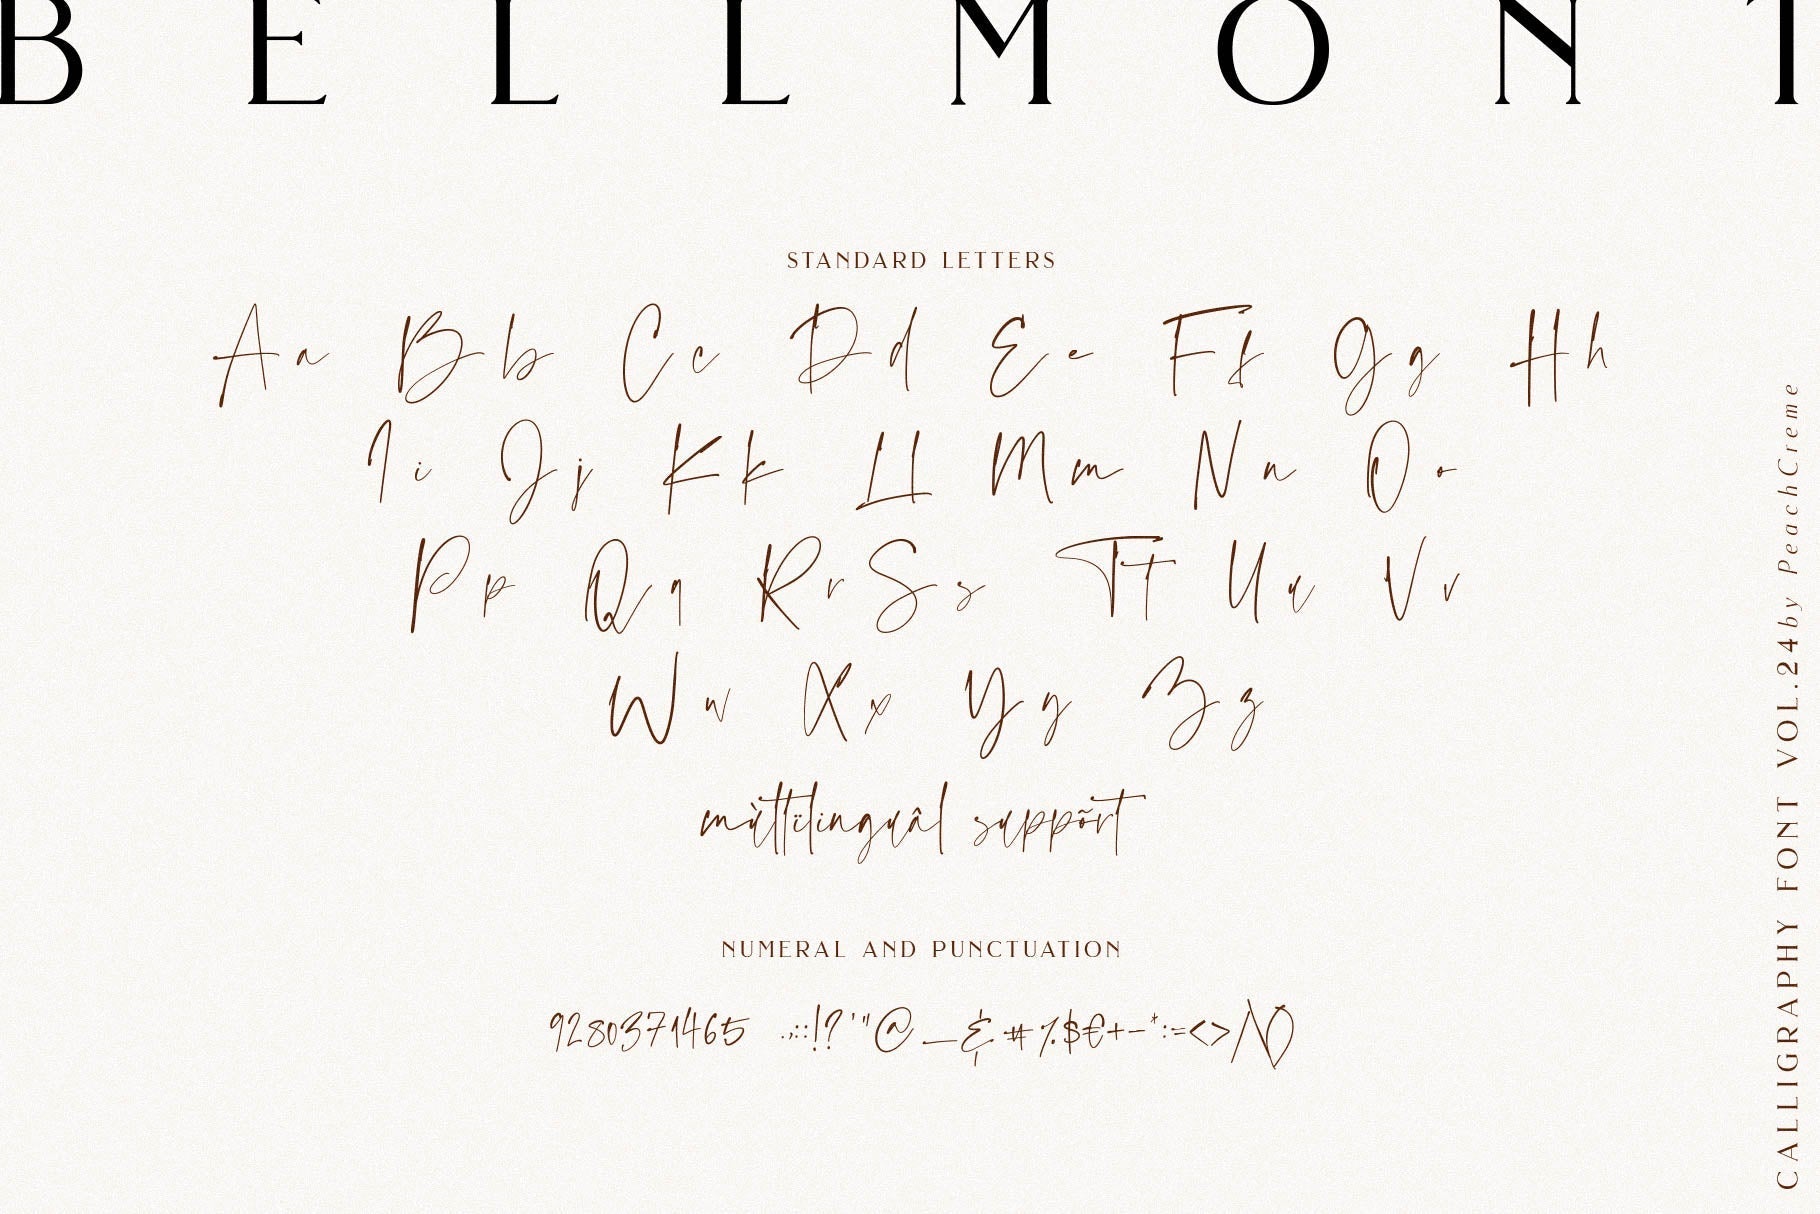 BELLMONT
STANDARD LETTERS
Aa Bb Cc Dd Ee Ff Gg Hh
Ii Jj Kk Ll Mm Nn Oo
Pp Qq Rr Ss Tt Uu Vv
Ww Xx Yy Zz
mùltïlinguâl suppõrt
NUMERAL AND PUNCTUATION
9280371465 .,:;!?'"@_&#%$€+-*:=<>/\()
CALLIGRAPHY FONT VOL.24 by PeachCreme